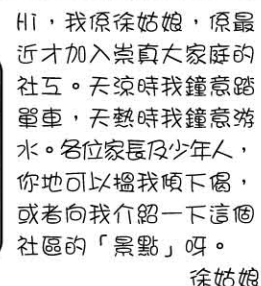 Hi，我係徐姑娘，係最
近才加入崇真大家庭的
社工。天涼時我鐘意踏
單車，天熱時我鐘意游
水。各位家長及少年人，
你地可以搵我傾下偈，
或者向我介紹一下這個
社區的「景點」呀。
徐姑娘